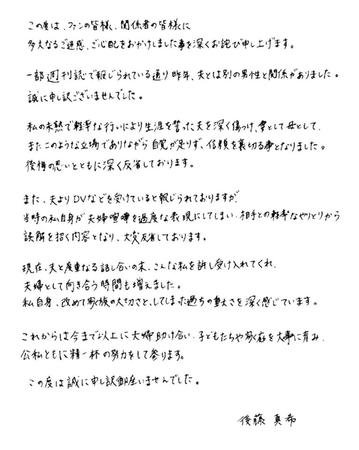 この度は、ファンの皆様、関係者の皆様に
多大なるご迷惑、ご心配をおかけしました事を深くお詫び申し上げます。
一部週刊誌で報じられている通り昨年、夫とは別の男性と関係がありました。
誠に申し訳ございませんでした。
私の未熟で軽率な行いにより生涯を誓った夫を深く傷つけ、妻として母として、
またこのような立場でありながら自覚が足りず、信頼を裏切る事となりました。
後悔の思いとともに深く反省しております。
また、夫よりDVなどを受けていると報じられておりますが、
当時の私自身が夫婦喧嘩を過度な表現にしてしまい、相手との軽率なやりとりから
誤解を招く内容となり、大変反省しております。
現在、夫と度重なる話し合いの末、こんな私を許し受け入れてくれ、
夫婦として向き合う時間も増えました。
私自身、改めて家族の大切さと、してしまった過ちの重大さを深く感じています。
これからは今まで以上に夫婦助け合い、子どもたちや家庭を大事に育み、
公私ともに精一杯の努力をして参ります。
この度は誠に申し訳御座いませんでした。
後藤 真希